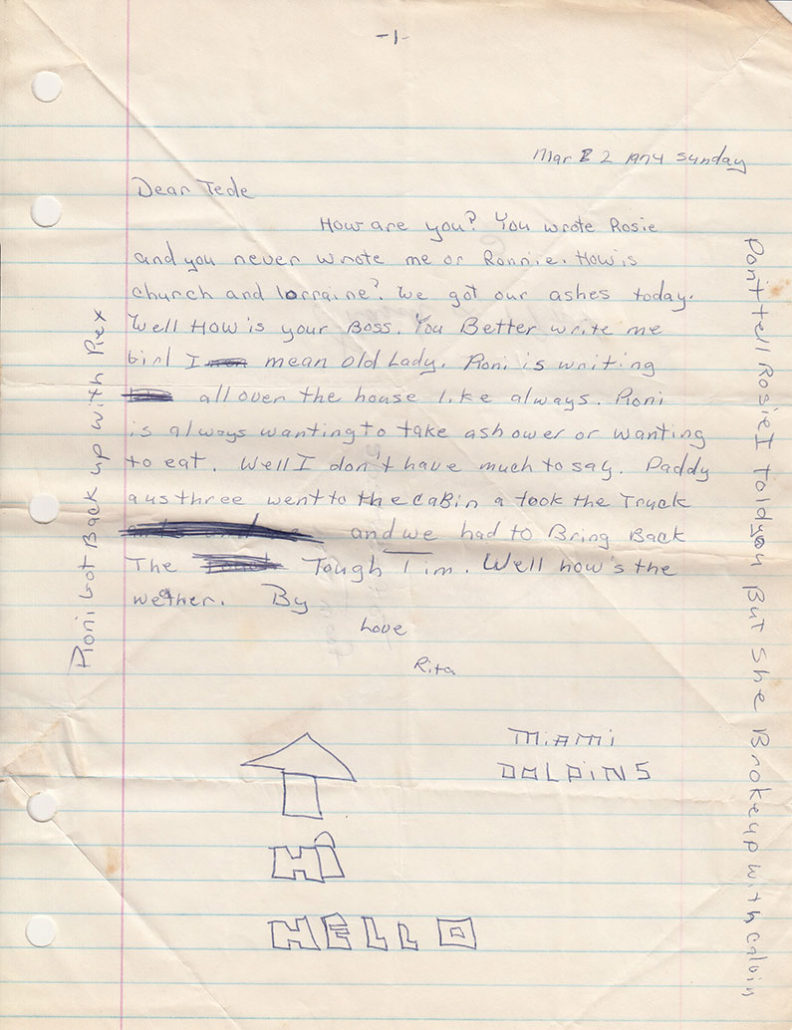 -1-
Mar 2 1974 Sunday
Dear Tede
How are you? You wrote Rosie
and you never wrote me or Ronnie. How is
church and lorraine? We got our ashes today.
Well How is your Boss. You Better write me
girl I mean Old Lady. Roni is writing
all over the house like always. Roni
is always wanting to take a shower or wanting
to eat. Well I don't have much to say. Daddy
a us three went to the caBin a took the Truck
and we had to Bring Back
The Tough Tim. Well how's the
wether. By
Love
Rita
MiAMi
DOLPiNS
Hi
HELLO
Roni Got Back up with Rex
Don't tell Rosie I told you But she Broke up with Calvin